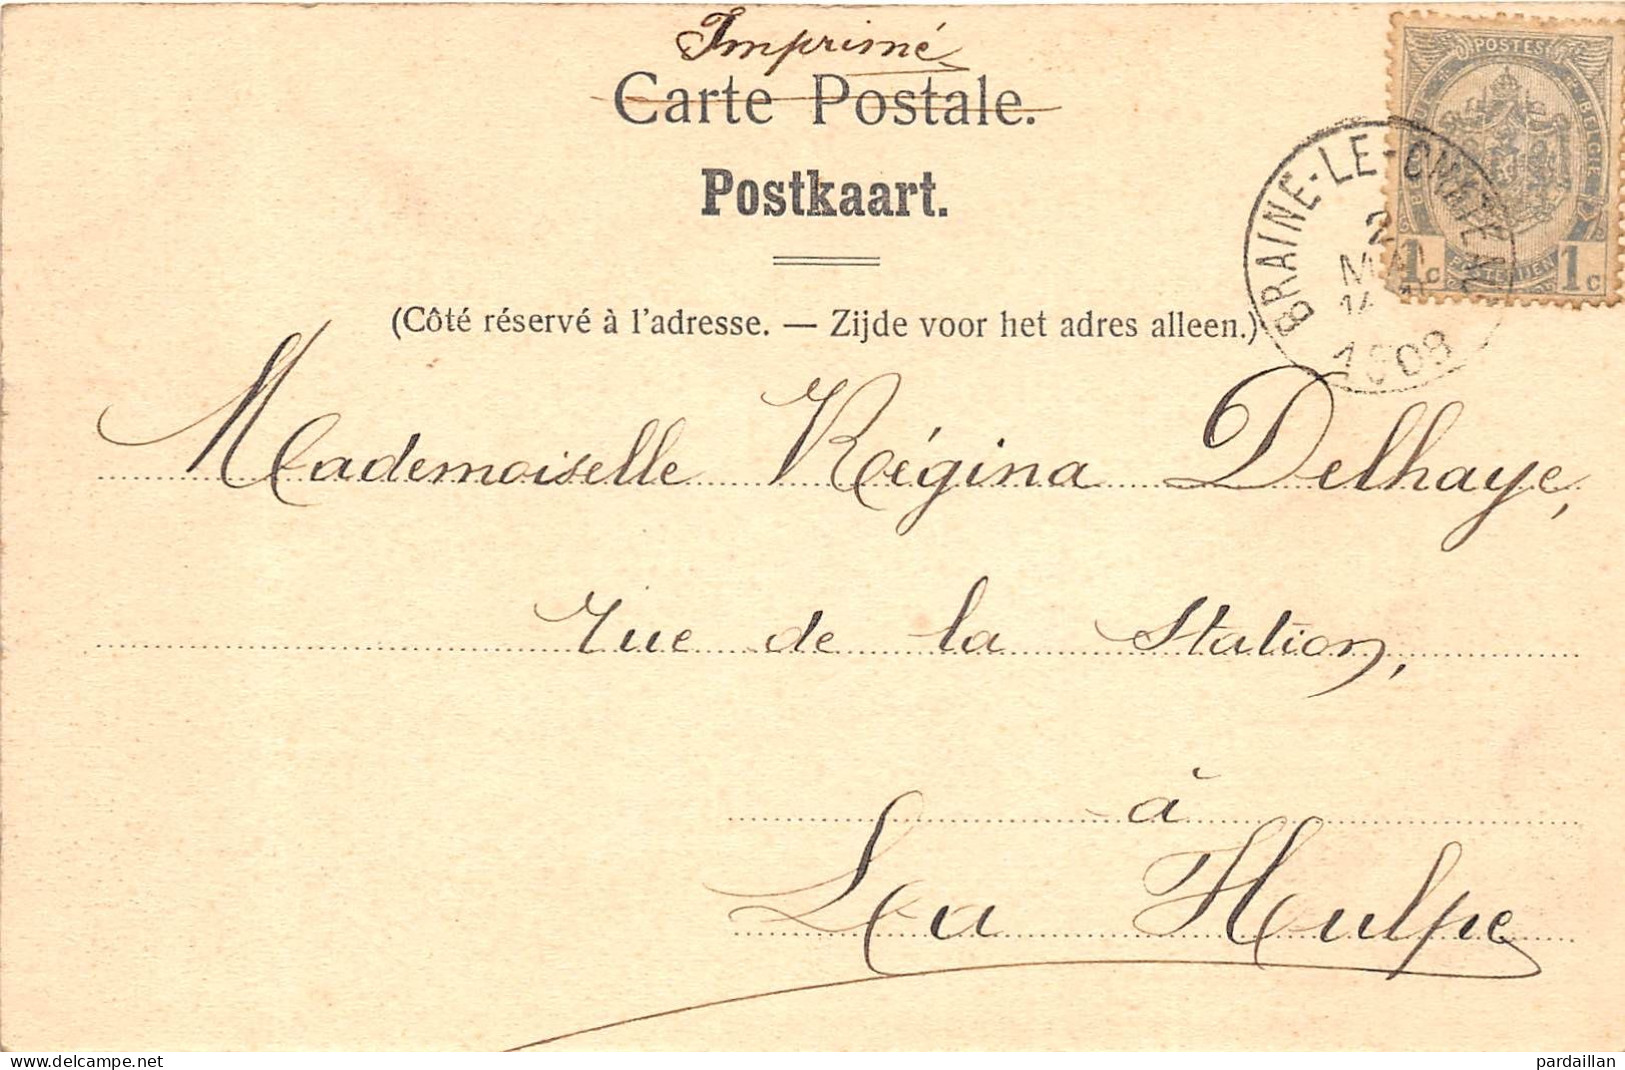 Imprimé
Carte Postale.
Postkaart.
(Côté réservé à l'adresse. — Zijde voor het adres alleen.)
POSTES
BELGIQUE BELGIË
POSTERIJEN
1c 1c
BRAINE-LE-CHATEAU
2
1908
Mademoiselle Régina Delhaye,
rue de la Station,
à
La Hulpe
delcampe.net
pardaillan